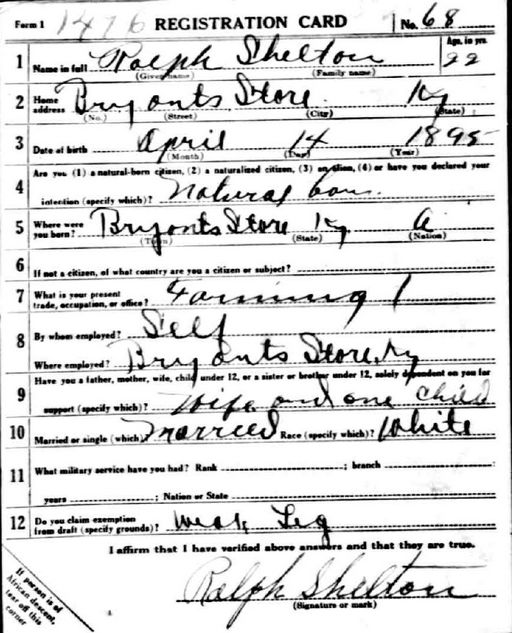 Form 1 1476 REGISTRATION CARD No. 68
1 Name in full Ralph Shelton Age, in yrs. 22
(Given name) (Family name)
2 Home address Bryants Store Ky
(No.) (Street) (City) (State)
3 Date of birth April 14 1895
(Month) (Day) (Year)
4 Are you (1) a natural-born citizen, (2) a naturalized citizen, (3) an alien, (4) or have you declared your
intention (specify which)? Natural born
5 Where were you born? Bryants Store Ky A
(Town) (State) (Nation)
6 If not a citizen, of what country are you a citizen or subject?
7 What is your present trade, occupation, or office? Farming 1
8 By whom employed? Self
Where employed? Bryants Store, Ky
9 Have you a father, mother, wife, child under 12, or a sister or brother under 12, solely dependent on you for
support (specify which)? Wife and one child
10 Married or single (which)? Married Race (specify which)? White
11 What military service have you had? Rank ; branch
years ; Nation or State
12 Do you claim exemption from draft (specify grounds)? Weak Leg
I affirm that I have verified above answers and that they are true.
Ralph Shelton
(Signature or mark)
If person is of
African descent,
tear off this
corner